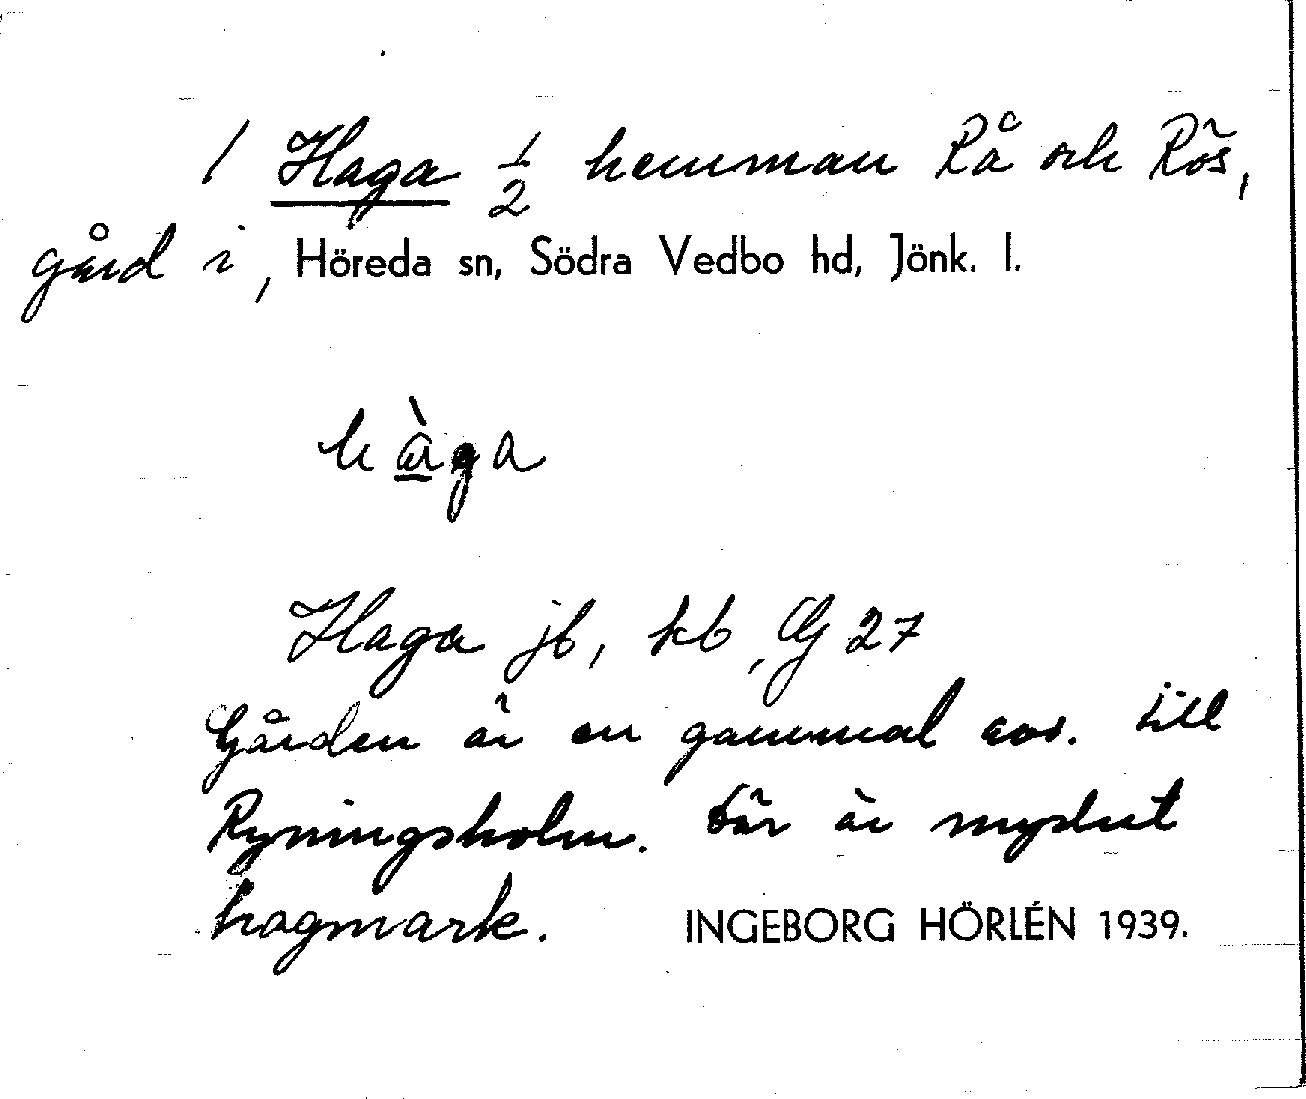 1 Haga 1/2 hemman Rå och Rös,
gård i, Höreda sn, Södra Vedbo hd, Jönk. l.
hàga
Haga jb, kb, G 27
Gården är en gammal avs. till
Ryningsholm. Där är mycket
hagmark. INGEBORG HÖRLÉN 1939.